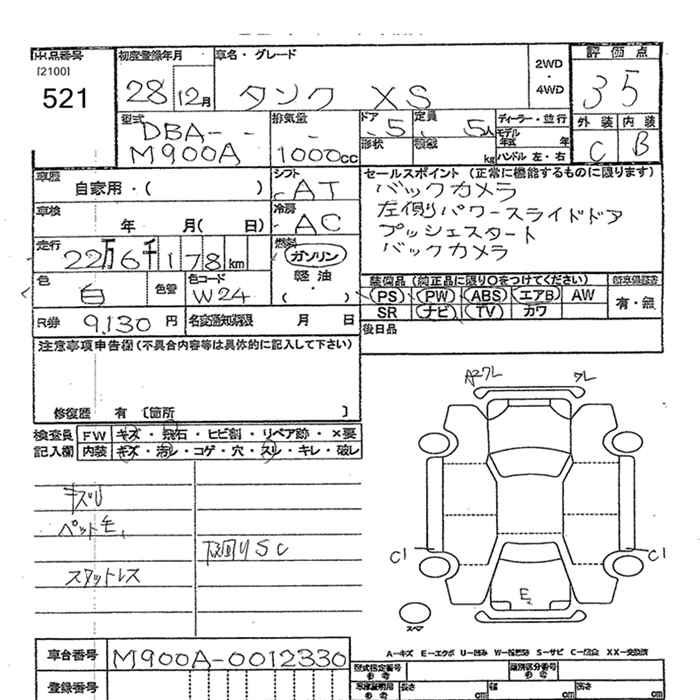 出品番号
[2100]
521
初度登録年月
28 12月
車名・グレード
タンク XS
2WD
・
4WD
評価点
3 5
外装 内装
C B
型式
DBA-
M900A
排気量
1000cc
ドア
5
定員
5人
形状
積載
kg
ディーラー・並行
モデル
年式 年
ハンドル 左・右
車歴
自家用・( )
シフト
AT
セールスポイント (正常に機能するものに限ります)
バックカメラ
左側パワースライドドア
プッシュスタート
バックカメラ
車検
年 月( 日)
冷房
AC
走行
22万6千178km
燃料
ガソリン
軽油
( ・ )
色
白
色替
色コード
W24
装備品 (純正品に限り○をつけてください)
PS PW ABS エアB AW
SR ナビ TV カワ
有・無
R券 9,130 円
名変通知期限 月 日
後日品
注意事項申告欄 (不具合内容等は具体的に記入して下さい)
修復歴 有 [箇所 ]
検査員
記入欄
FW キズ・飛石・ヒビ割・リペア跡・×要
内装 キズ・汚レ・コゲ・穴・スレ・キレ・破レ
キズU
ペット毛
スタットレス
下回りSC
A27L
7L
C1
C1
E2
スペア
A-キズ E-エクボ U-凹み W-補修跡 S-サビ C-腐食 XX-交換済
車台番号 M900A-0012330
登録番号
型式指定番号
参考
類別区分番号
参考
参考 長さ cm 幅 cm 高さ cm